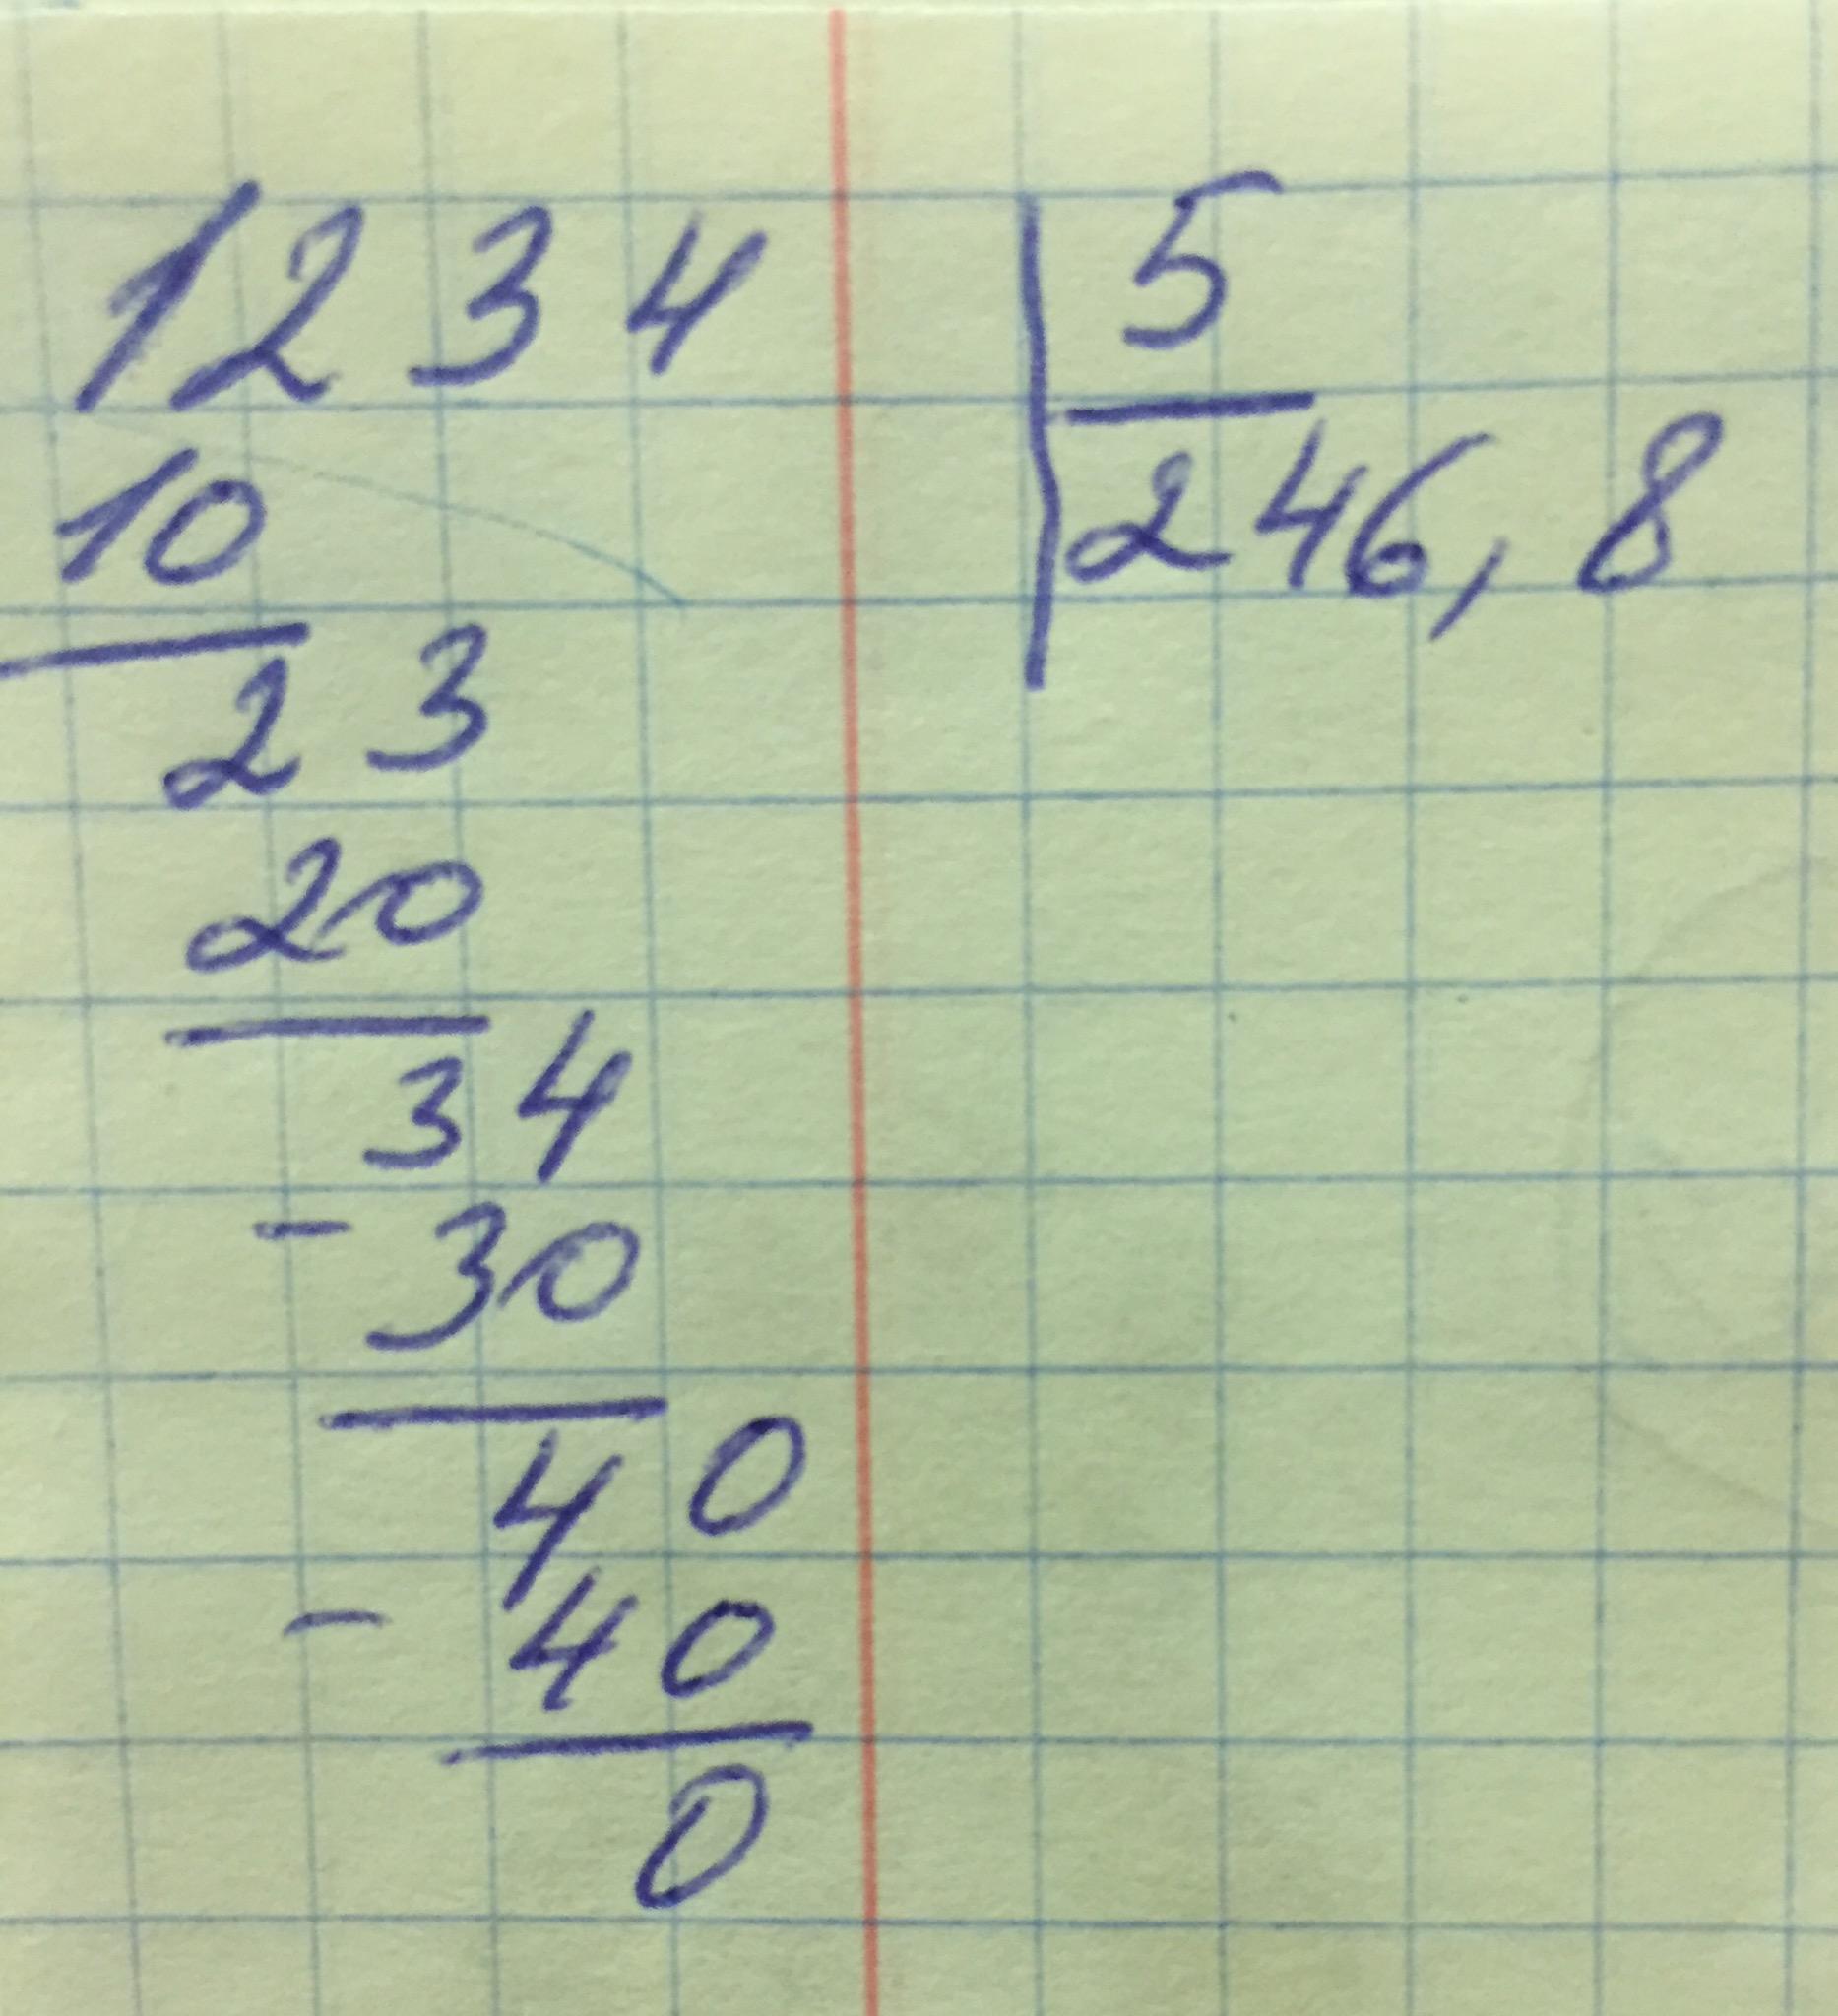 1234 5
10 246,8
23
20
34
- 30
40
- 40
0